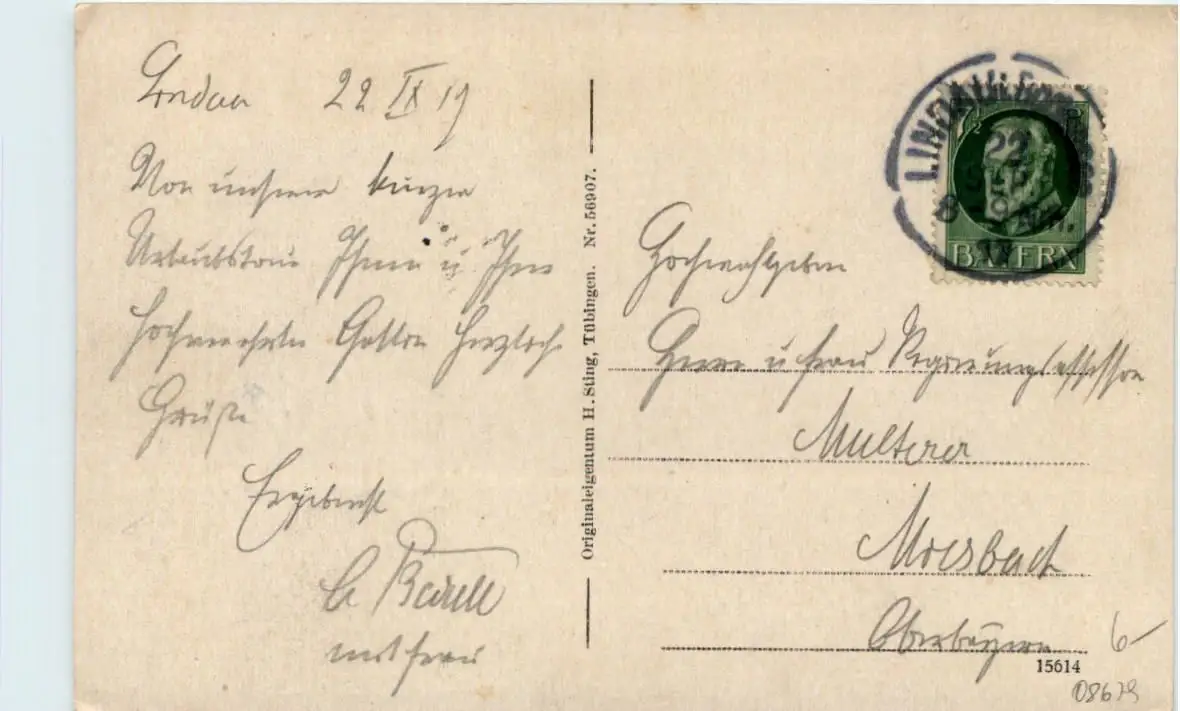 Lindau 22 IX 19
Von unserer kurzen
Urlaubstour Ihnen u Ihrer
hochverehrten Gattin herzliche
Grüße
Ergebenst
mit Frau
Originaleigentum H. Sting, Tübingen. Nr. 56907.
LINDAU
22
SEP
BAYERN
Hochwohlgeboren
Herrn u Frau Regierungsassessor
Multerer
Miesbach
Oberbayern
6-
15614
08679